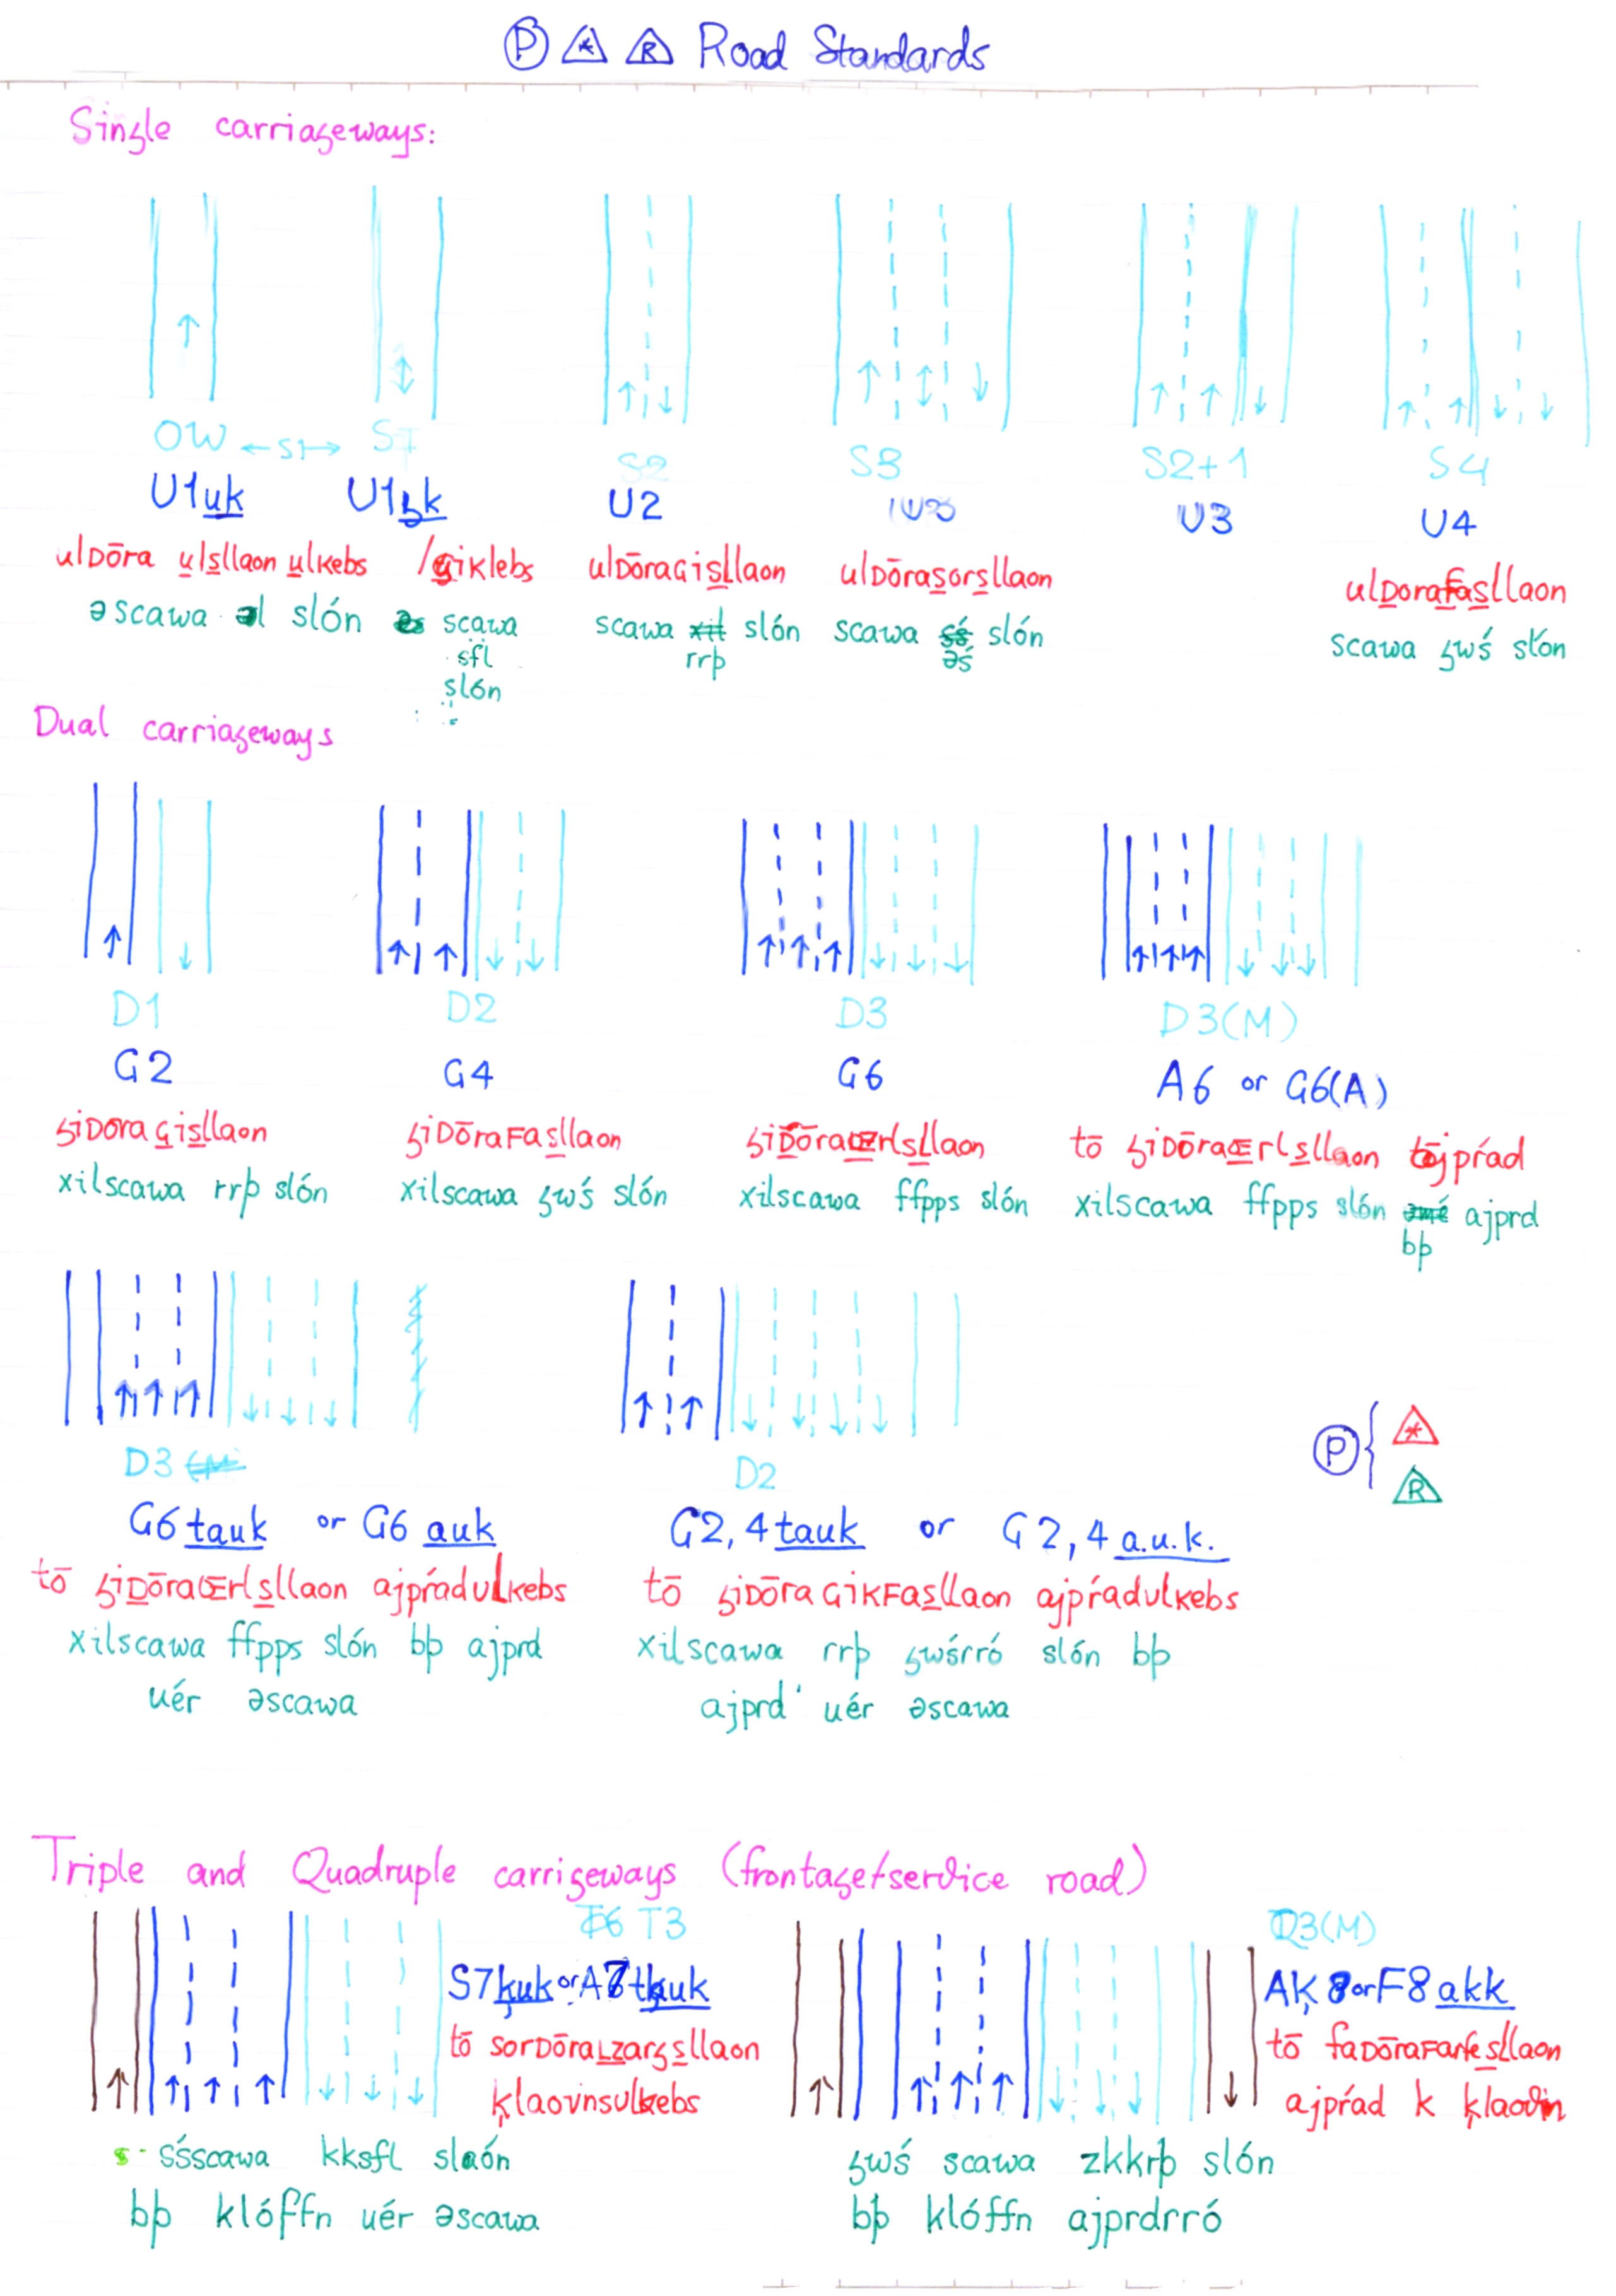 P * R Road Standards
Single carriageways:
OW ←S1→ S1 S2 S3 S2+1 S4
U1uk U1ɜk U2 U3 U4
ulDōra ulsllaon ulkebs /giklebs ulDōraGisllaon ulDōrasorsllaon ulDorafasllaon
əscawa əl slón scawa sfl slón scawa rrþ slón scawa əś slón scawa ʒwś slón
Dual carriageways
D1 D2 D3 D3(M)
G2 G4 G6 A6 or G6(A)
ʒiDōraGisllaon ʒiDōraFasllaon ʒiDōraŒrlsllaon tō ʒiDōraŒrlsllaon tōjpŕad
xilscawa rrþ slón xilscawa ʒwś slón xilscawa ffpps slón xilscawa ffpps slón bþ ajprd
D3 D2
P { * R
G6 tauk or G6 auk G2,4 tauk or G2,4 a.u.k.
tō ʒiDōraŒrlsllaon ajpŕadulkebs tō ʒiDōraGiKFasllaon ajpŕadulkebs
xilscawa ffpps slón bþ ajprd xilscawa rrþ ʒwśrró slón bþ
uér əscawa ajprd uér əscawa
Triple and Quadruple carrigeways (frontage/service road)
T3 Q3(M)
S7ķuk or A7tķuk AĶ8 or F8 akk
tō sorDōraLZarʒsllaon tō faDōraFarfesllaon
ķlaovinsulkebs ajpŕad k ķlaovin
śśscawa kksfl slaón ʒwś scawa zkkrþ slón
bþ klóffn uér əscawa bþ klóffn ajprdrró